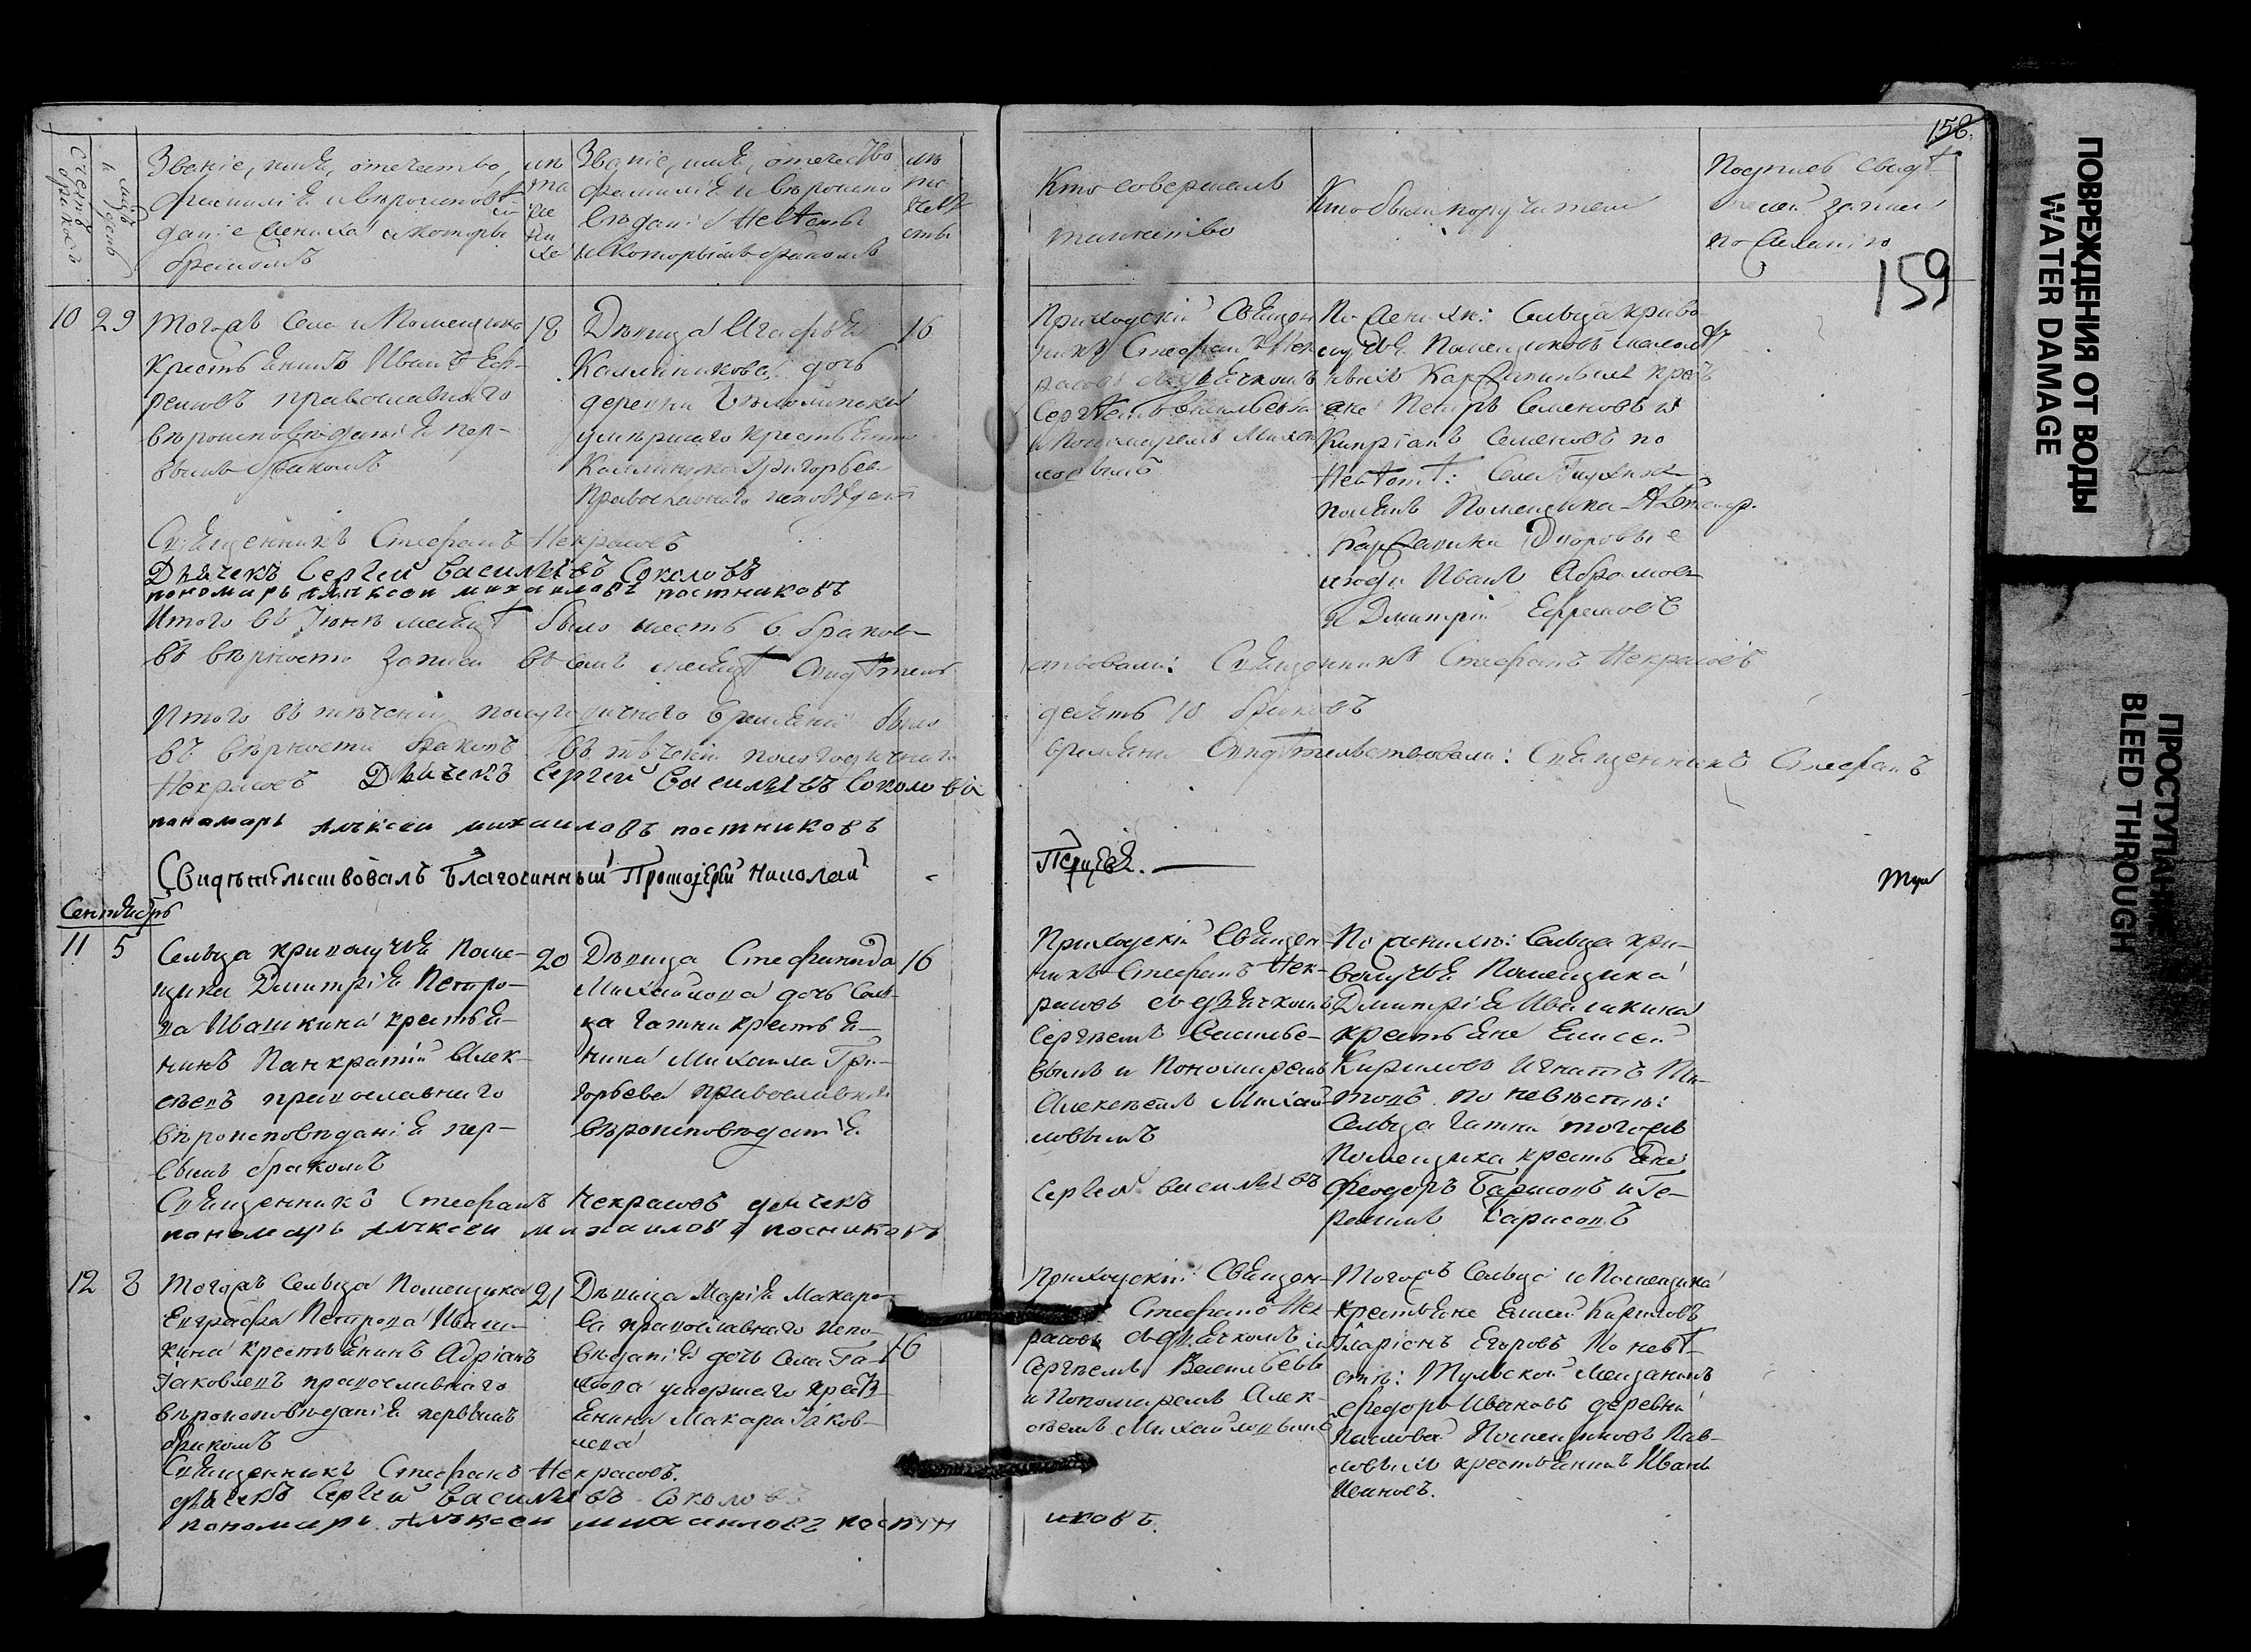 158.
159
Счетъ браковъ
Званіе, имя, отечество,
фамилія и вѣроисповѣ
даніе жениха и которы
бракомъ
Званіе, имя, отечество
фамилія и вѣроиспо
вѣданіе невѣсты
и которымъ бракомъ
Кто совершалъ
таинство
Кто были поручители
Подпись свидѣ
телей записи
по желанію
10 29
Тогожъ села и помещика
крестьянинъ Иванъ Еф-
ремовъ православнаго
вѣроисповѣданія пер-
вымъ бракомъ
18
Дѣвица Агафья
Каллиникова дочь
деревни
умершаго крестьянина
Каллиника Григорьева
православнаго исповѣданія
16
Приходскій Священ
никъ Стефанъ Нек
расовъ съ дьячкомъ
Сергѣемъ Васильевы
и Пономаремъ Михаи
ловымъ
По женихѣ: Сельца Криво
лучья Помещиковъ малолѣт
ныхъ кресть
яне Петръ Семеновъ и
Кипріанъ Семеновъ по
невѣстѣ: Села
Помещика
Дворовые
люди Иванъ Абрамовъ
и Дмитрій Ефремовъ
Священникъ Стефанъ Некрасовъ
Дьячекъ Сергей Васильевъ Соколовъ
пономарь Алѣксеи михаиловъ постниковъ
Итого въ Іюнѣ месяцѣ было шесть 6 браковъ
въ вѣрности записи въ семъ месяцѣ свидѣтель
ствовали: Священникъ Стефанъ Некрасовъ
Итого въ теченіи полугодичнаго времяни было
десять 10 браковъ
въ вѣрности браковъ въ теченіи полугодичнаго
времяни свидѣтельствовали: Священникъ Стефанъ
Некрасовъ Дьячекъ Сергей Васильевъ Соколовъ
пономарь Алѣксеи михаиловъ постниковъ
Свидѣтельствовалъ Благочинный Протоіерей Николай
Сентябрь
11 5
Сельца Криволучья Поме-
щика Дмитрія Петро-
ва Ивашкина крестья-
нинъ Панкратій Алек-
сѣевъ православнаго
вѣроисповѣданія пер-
вымъ бракомъ
20
Дѣвица Стефанида
Михайлова дочь Сель-
ца Гатни крестья-
нина Михаила Гри-
горьева православнаго
вѣроисповѣданія
16
Приходскій Священ-
никъ Стефанъ Нек-
расовъ съ дьячкомъ
Сергѣемъ Василье-
вымъ и Пономаремъ
Алексѣемъ Михай-
ловымъ
По женихѣ: Сельца Кри-
волучья Помещика
Дмитрія Ивашкина
крестьяне Елисей
Кириловъ Игнатъ Ти-
товъ. По невѣстѣ:
Сельца Гатни тогожъ
Помещика крестьяне
Феодоръ Барисовъ и Ге-
расимъ Барисовъ
Священникъ Стефанъ Некрасовъ дьячекъ
Сергей Васильевъ
пономарь Алѣксеи михаиловъ посниковъ
12 8
Тогожъ Сельца Помещика
Евграфа Петрова Иваш-
кина крестьянинъ Адріанъ
Іаковлевъ православнаго
вѣроисповѣданія первымъ
бракомъ
21
Дѣвица Марія Макаро-
ва православнаго испо-
вѣданія дочь села
умершаго кресть
янина Макара Іаков-
лева
16
Приходскій Священ-
Стефанъ Нек
расовъ съ дьячкомъ
Сергѣемъ Васильевы
и Пономаремъ Алек-
сѣемъ Михайловымъ
Тогожъ Сельца и Помещика
крестьяне Елисей Кириловъ
Иларіонъ Егоровъ По невѣ-
стѣ: Тульской Мещанинъ
Федоръ Ивановъ деревни
Павловой Помещиковъ Пав-
ловыхъ крестьянинъ Иванъ
Ивановъ.
Священникъ Стефанъ Некрасовъ.
дьячекъ Сергей Васильевъ Соколовъ
пономарь Алѣксеи михаиловъ постн
иковъ.
ПОВРЕЖДЕНИЯ ОТ ВОДЫ
WATER DAMAGE
ПРОСТУПАНИЕ
BLEED THROUGH